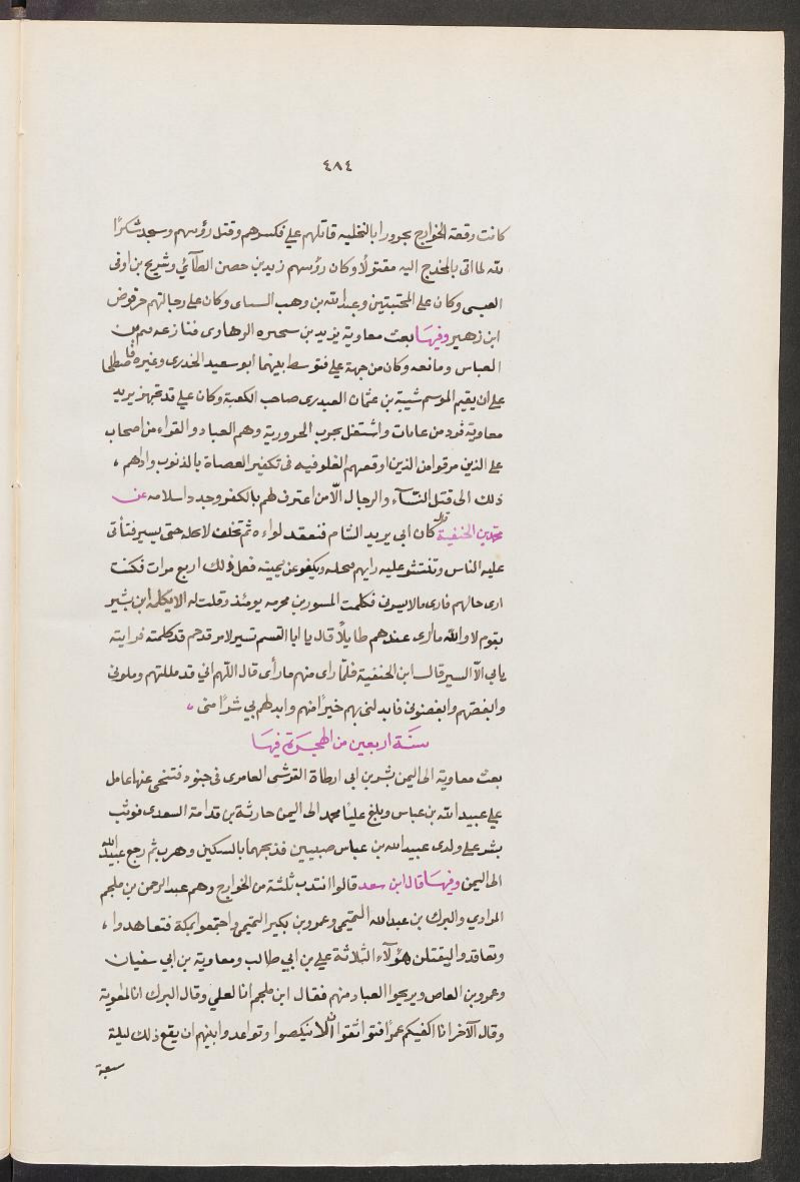 ٤٨٤
كانت وقعة الخوارج بحرورا بالنخليه قاتلهم علي فكسرهم وقتل رؤسهم وسجد شكرًا
لله لما اتى بالمخدج اليه مقتولًا وكان رؤسهم زيد بن حصن الطآئي وشريح بن اوفى
العبسى وكان على المجتبتين وعبدالله بن وهب السباى وكان على رجالتهم حرقوص
ابن زهير وفيهَا بعث معاوية يزيد بن سحره الرهاوى فنازعه قثم بن
العباس ومانعه وكان من جهة على فتوسط بينهما ابو سعيد الخدرى وغيره فاصطلحا
على ان يقيم الموسم شيبة بن عثمان العبدرى صاحب الكعبة وكان علي قد تجهز يريد
معاوية فرد من عانات واشتغل بحرب الحرورية وهم العباد والقراء من اصحاب
على الذين مرقوا من الذين اوقعهم الغلو فيه فى تكفير العصاة بالذنوب واداهم ،
ذلك الى قتل النسآء والرجال الّا من اعترف لهم بالكفر وجدد اسلامه عن
محمد بن الحنفية قال كان ابى يريد الشام فنعقد لواءه ثم تحلف لا يحله حتى يسير فتأتى
عليه الناس وتنتشر عليه رايهم فيحله ويكفر عن يمينه فعل ذلك اربع مرات فكنت
ارى حالهم فارى مالا يسرنى فكلمت المسور بن مخرمه يومئذ وقلت له الا تكلمه اين يسير
بقوم لا والله ما ارى عندهم طايلًا قال يا ابا القسم تسير لامر قد حم قد كلمته فرايته
يابى الّا السير قال ابن الحنفية فلمّا راى منهم ما رأى قال اللّهم اني قد مللتهم وملونى
وابغضتهم وابغضونى فابدلنى بهم خيرًا منهم وابدلهم بي شرًا منى ،
سَنَة اربعين من الهجَرَة فيهَا
بعث معاوية الى اليمن بشر بن ابى ارطاة القرشى العامرى فى جنود فتنحى عنها عامل
علي عبيد الله بن عباس وبلغ عليًا الى اليمن حارثة بن قدامة السعدى فوثب
بشر على ولدى عبيدالله بن عباس صبيين فذبحهما بالسكين وهرب ثم رجع عبيد الله
الى اليمن وفيهَا قال ابن سعد قالوا انتدب ثلثة من الخوارج وهم عبد الرحمن بن ملجم
المرادي والبرك بن عبدالله التميمى وعمرو بن بكير التميمى واجتمعوا بمكة فتعاهدوا ،
وتعاقدوا ليقتلن هؤلآء الثلاثة على بن ابي طالب ومعاوية بن ابي سفيان
وعمرو بن العاص ويريحوا العباد منهم فقال ابن ملجم انا لعلي وقال البرك انا لمعوية
وقال الآخر انا اكفيكم عمرًا فتواثقوا ان لا ينكصوا وتواعدوا بينهم ان يقع ذلك ليلة
سبعة